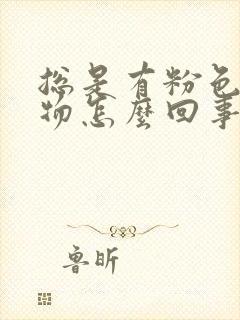 总是有粉色
物怎麼回事
鲁昕